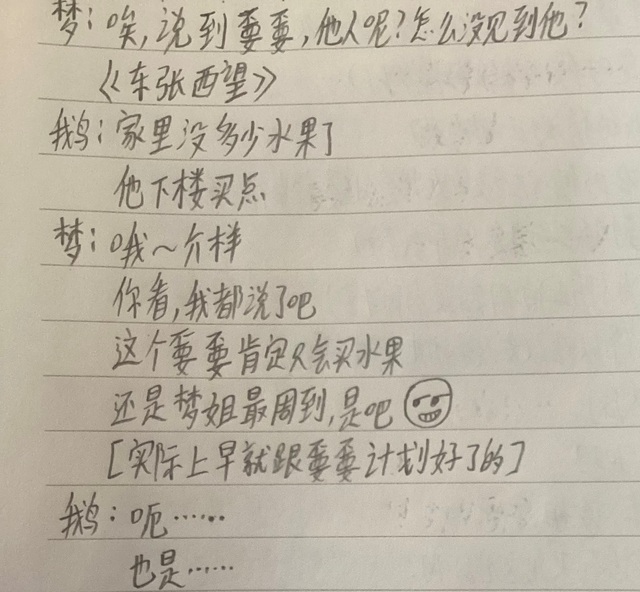 梦：唉，说到耍耍，他人呢？怎么没见到他？
《东张西望》
鹅：家里没多少水果了
他下楼买点
梦：哦～介样
你看，我都说了吧
这个耍耍肯定只会买水果
还是梦姐最周到，是吧
［实际上早就跟耍耍计划好了的］
鹅：呃……
也是……